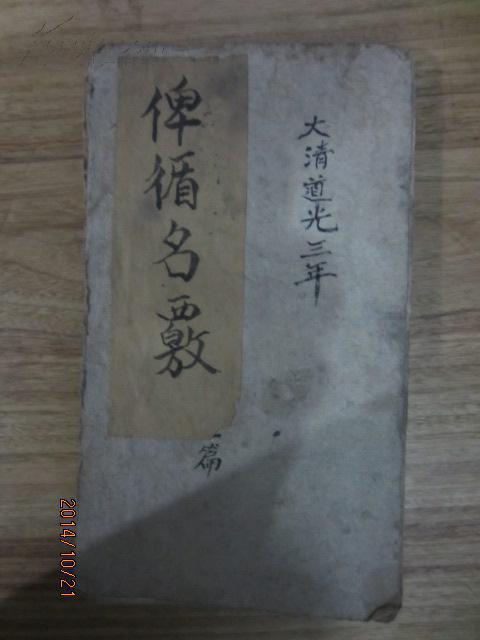 大清道光三年
俾循名覈
篇
2014/10/21